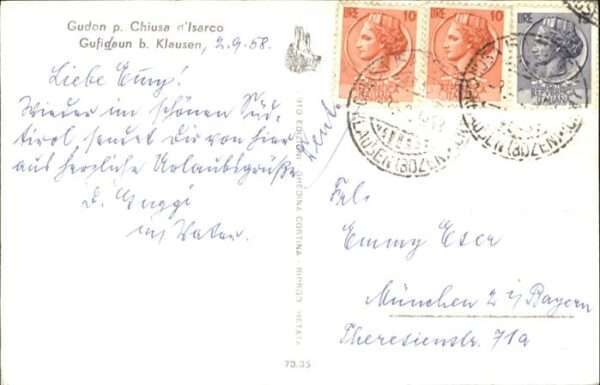 Gudon p. Chiusa d'Isarco
Gufidaun b. Klausen, 2.9.58.
Liebe Emmy!
Wieder im schönen Süd-
tirol, sendet dir von hier
aus herzliche Urlaubsgrüße
d. Guggi
u. Vater.
LIRE 10
LIRE 10
LIRE
KLAUSEN (BOZEN)
KLAUSEN (BOZEN)
FOTO EDIZIONI GHEDINA CORTINA - RIPROD. VIETATA
73.35
Frl.
Emmy Eser
München 2 i/ Bayern
Theresienstr. 71a